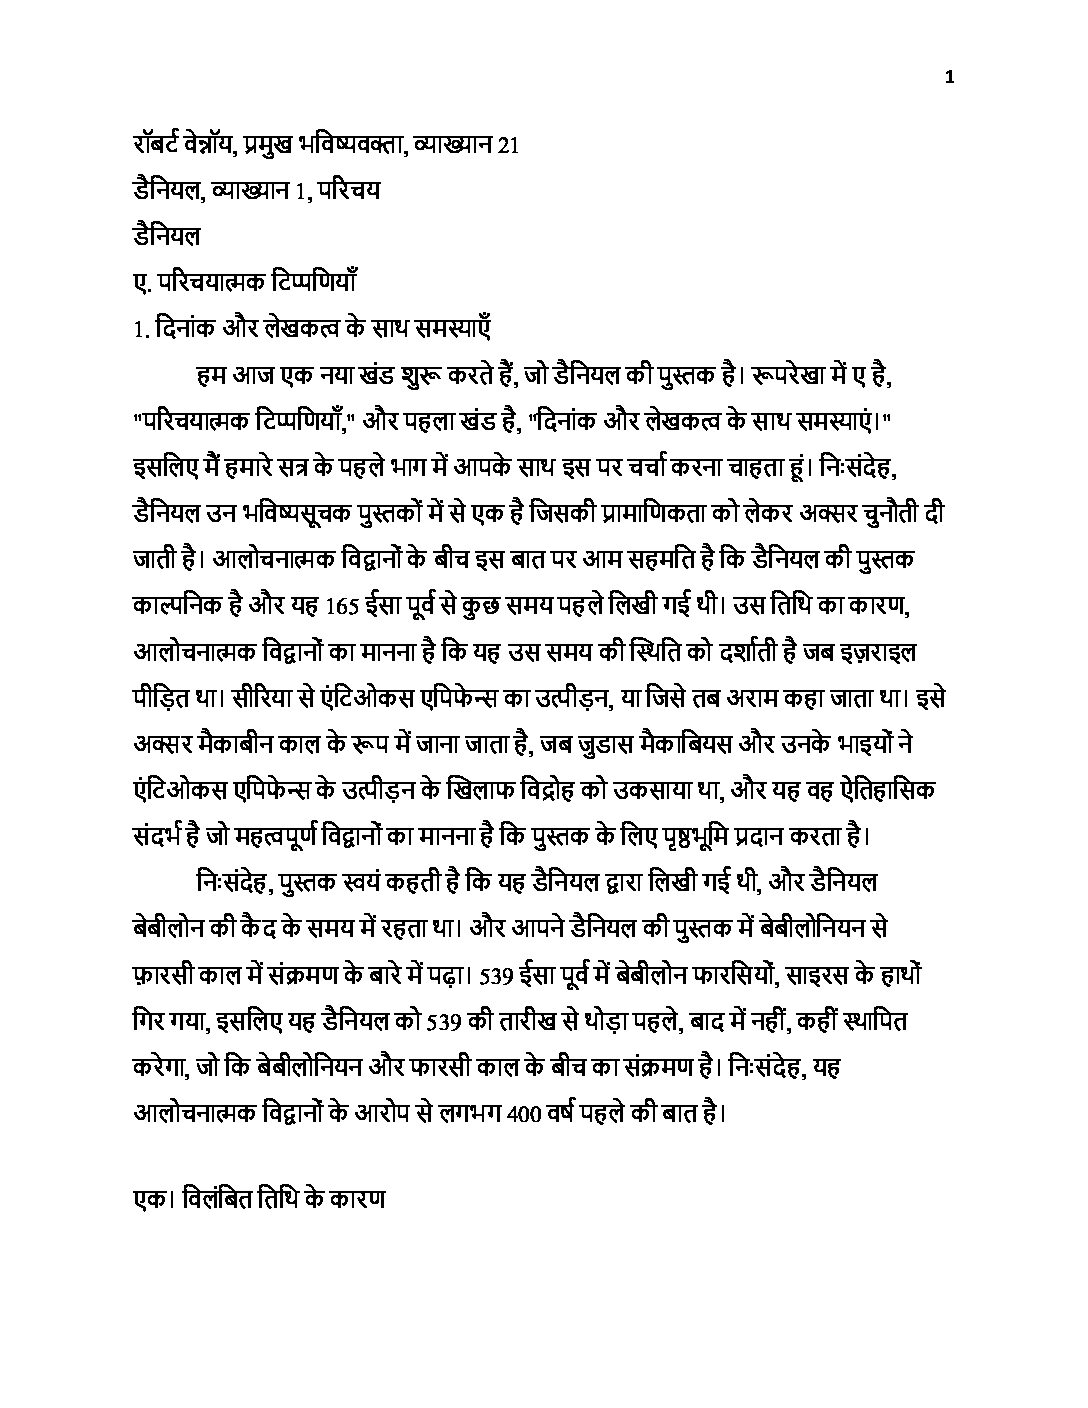 1
रॉबर्ट वेन्नॉय, प्रमुख भविष्यवक्ता, व्याख्यान 21
डैनियल, व्याख्यान 1, परिचय
डैनियल
ए. परिचयात्मक टिप्पणियाँ
1. दिनांक और लेखकत्व के साथ समस्याएँ
हम आज एक नया खंड शुरू करते हैं, जो डैनियल की पुस्तक है। रूपरेखा में ए है,
"परिचयात्मक टिप्पणियाँ," और पहला खंड है, "दिनांक और लेखकत्व के साथ समस्याएं।"
इसलिए मैं हमारे सत्र के पहले भाग में आपके साथ इस पर चर्चा करना चाहता हूं। निःसंदेह,
डैनियल उन भविष्यसूचक पुस्तकों में से एक है जिसकी प्रामाणिकता को लेकर अक्सर चुनौती दी
जाती है। आलोचनात्मक विद्वानों के बीच इस बात पर आम सहमति है कि डैनियल की पुस्तक
काल्पनिक है और यह 165 ईसा पूर्व से कुछ समय पहले लिखी गई थी। उस तिथि का कारण,
आलोचनात्मक विद्वानों का मानना है कि यह उस समय की स्थिति को दर्शाती है जब इज़राइल
पीड़ित था। सीरिया से एंटिओकस एपिफेन्स का उत्पीड़न, या जिसे तब अराम कहा जाता था। इसे
अक्सर मैकाबीन काल के रूप में जाना जाता है, जब जुडास मैकाबियस और उनके भाइयों ने
एंटिओकस एपिफेन्स के उत्पीड़न के खिलाफ विद्रोह को उकसाया था, और यह वह ऐतिहासिक
संदर्भ है जो महत्वपूर्ण विद्वानों का मानना है कि पुस्तक के लिए पृष्ठभूमि प्रदान करता है।
निःसंदेह, पुस्तक स्वयं कहती है कि यह डैनियल द्वारा लिखी गई थी, और डैनियल
बेबीलोन की कैद के समय में रहता था। और आपने डैनियल की पुस्तक में बेबीलोनियन से
फ़ारसी काल में संक्रमण के बारे में पढ़ा। 539 ईसा पूर्व में बेबीलोन फारसियों, साइरस के हाथों
गिर गया, इसलिए यह डैनियल को 539 की तारीख से थोड़ा पहले, बाद में नहीं, कहीं स्थापित
करेगा, जो कि बेबीलोनियन और फारसी काल के बीच का संक्रमण है। निःसंदेह, यह
आलोचनात्मक विद्वानों के आरोप से लगभग 400 वर्ष पहले की बात है।
एक। विलंबित तिथि के कारण